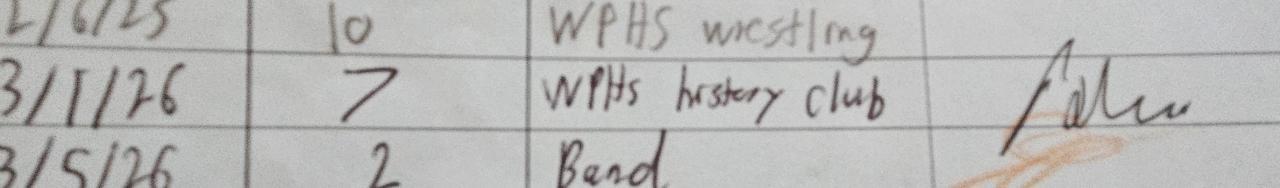 2/6/25 10 WPHS wrestling
3/1/26 7 WPHS history club
3/5/26 2 Band